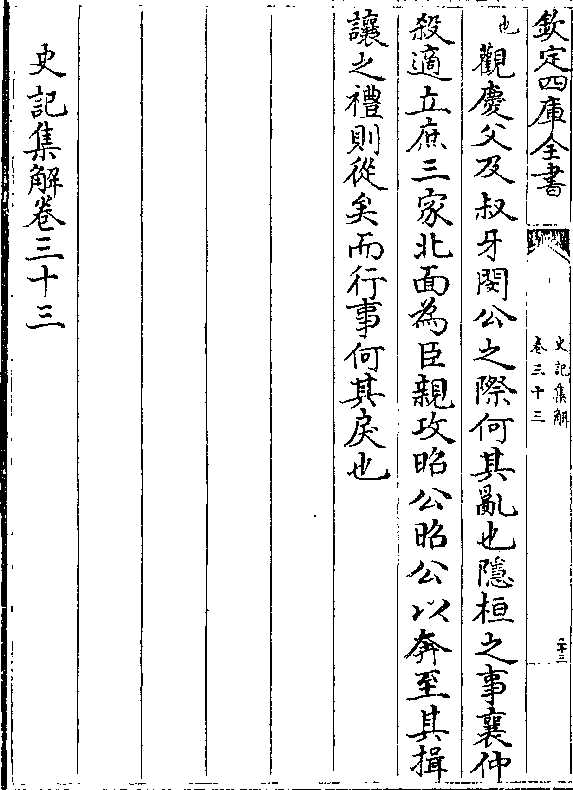 欽定四庫全書
史記集解
卷三十三
二十三
也觀慶父及叔牙閔公之際何其亂也隱桓之事襄仲
殺適立庶三家北面為臣親攻昭公昭公以奔至其揖
讓之禮則從矣而行事何其戾也
史記集解卷三十三